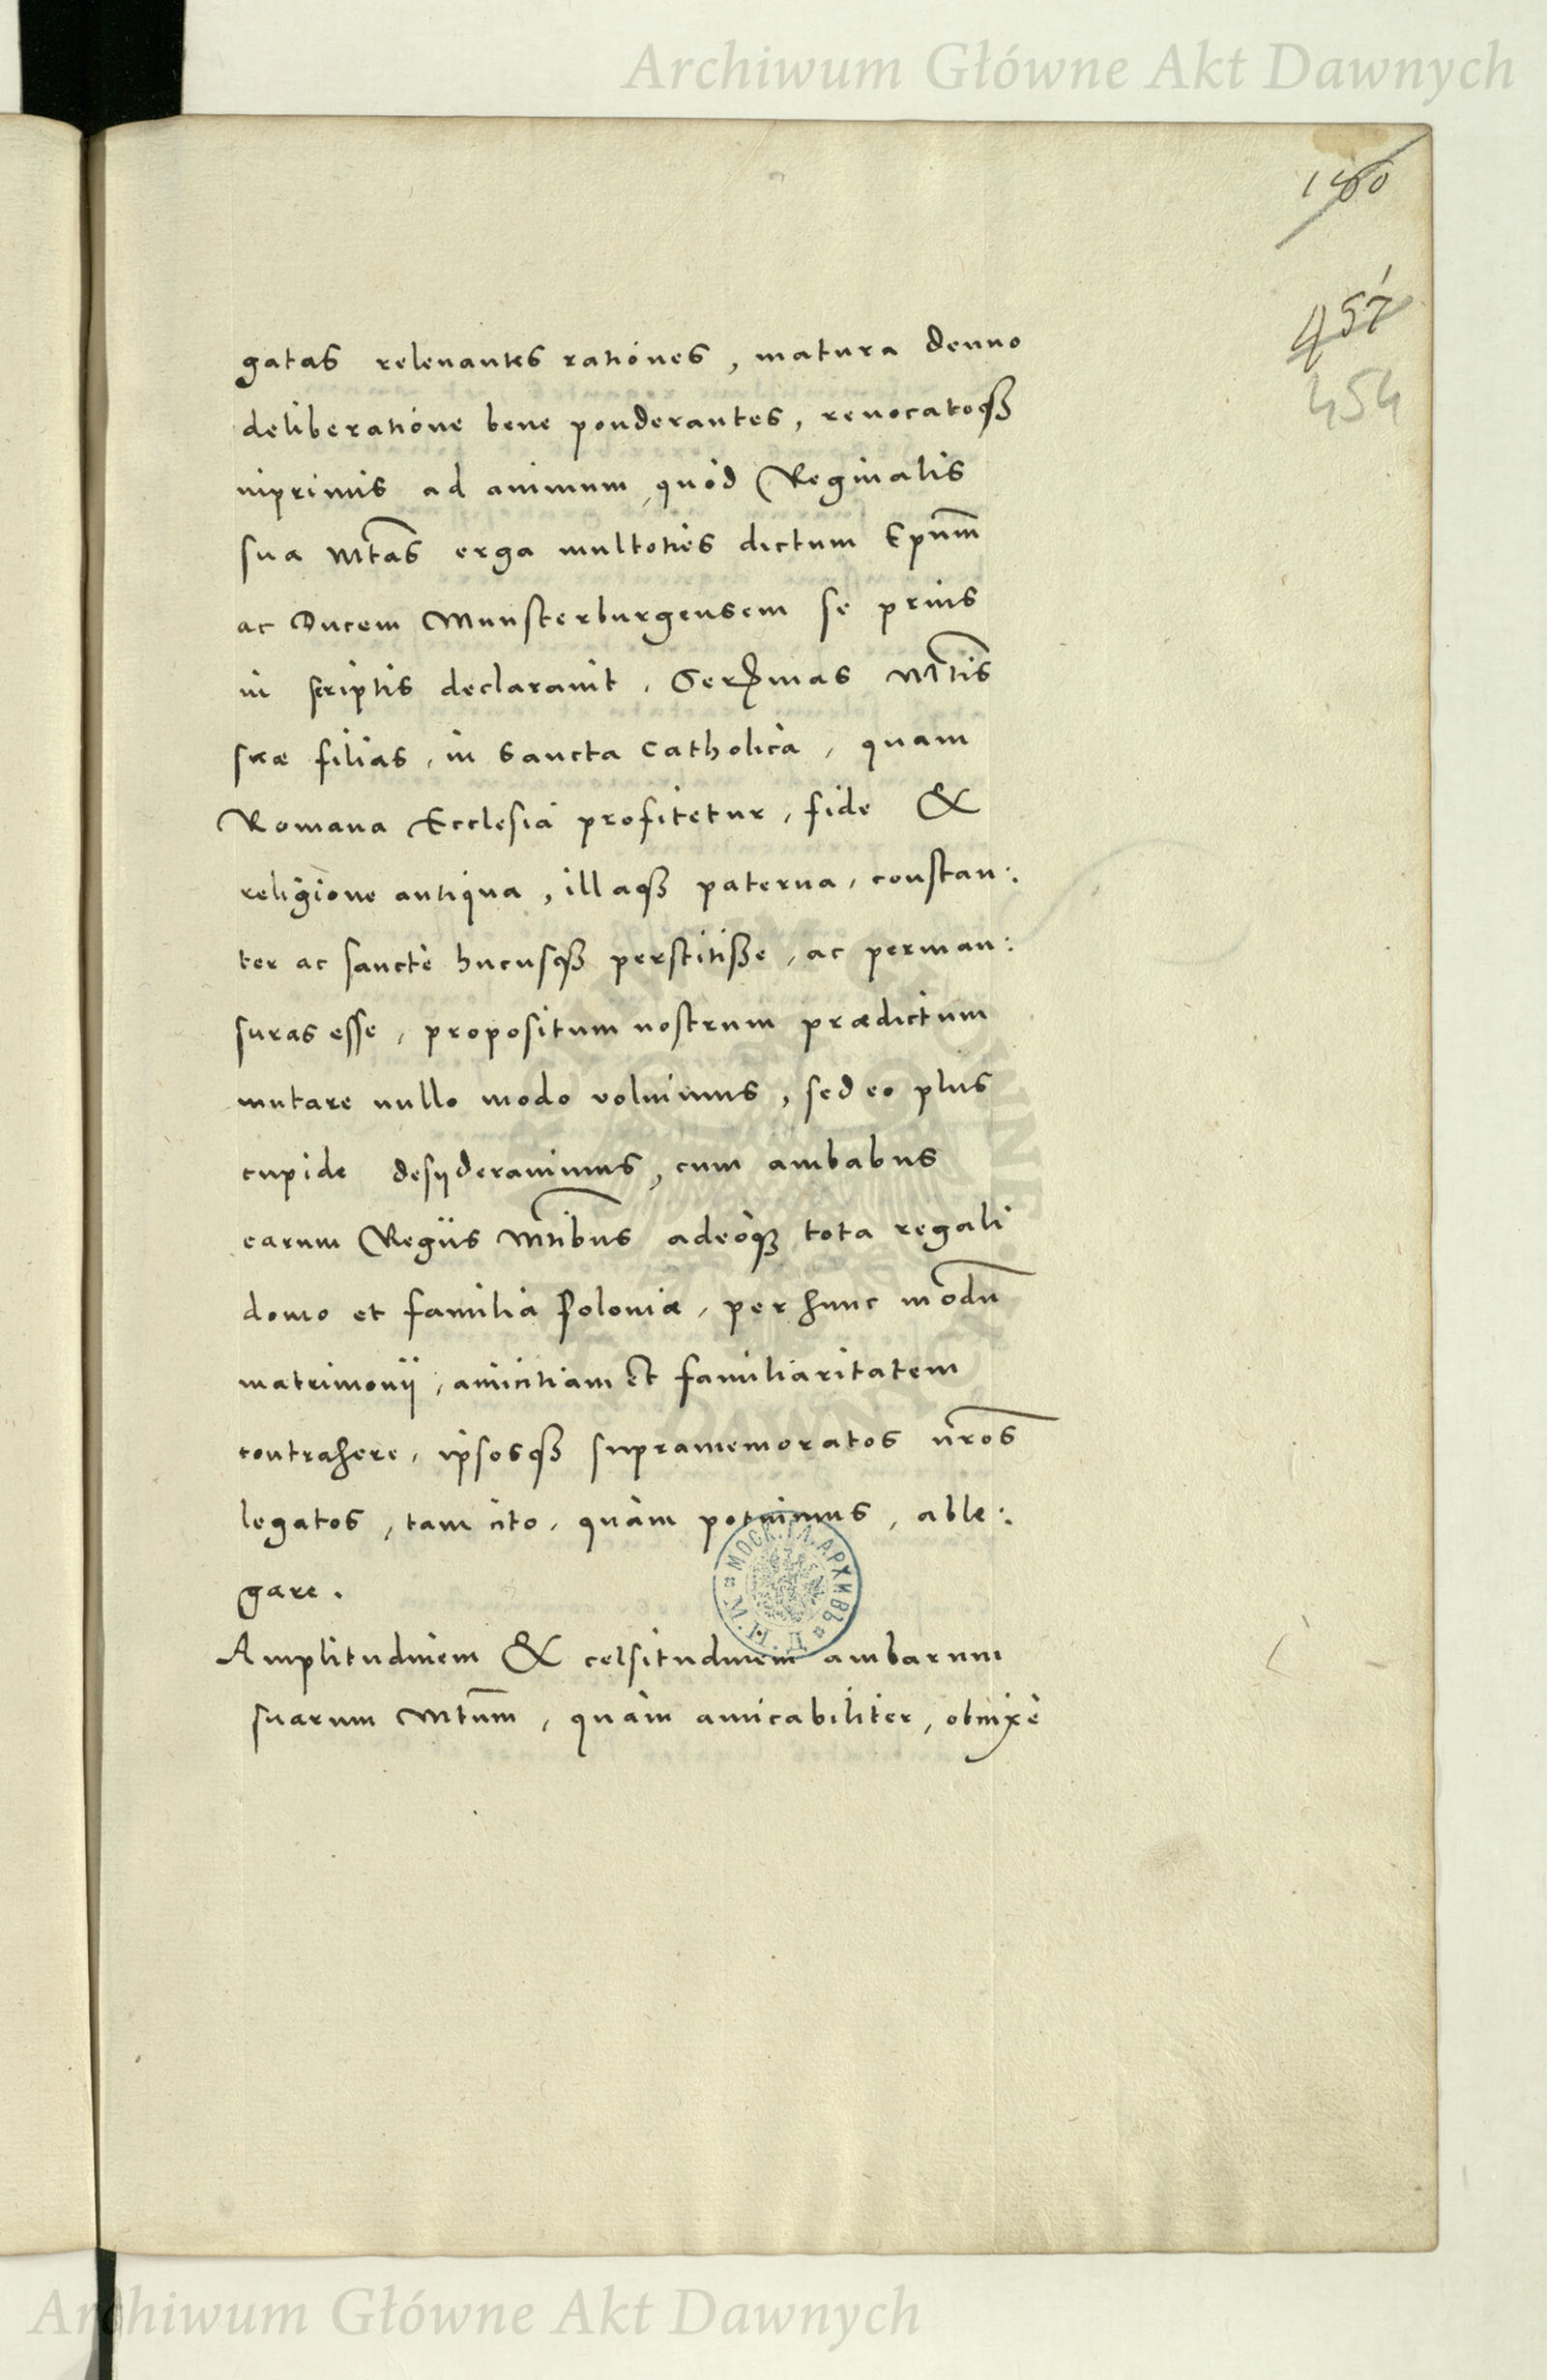 Archiwum Główne Akt Dawnych
160
457
454
gatas relevantes rationes, matura denuo
deliberatione bene ponderantes, revocatoqꝫ
inprimis ad animum, quòd Reginalis
sua Mtas erga multoties dictum Epnm
ac Ducem Munsterburgensem se prius
in scriptis declaravit, Serᵐas Mtis
suæ filias, in sancta catholica, quam
Romana Ecclesia profitetur, fide &
religione antiqua, illaqꝫ paterna, constan:
ter ac sanctè hucusqꝫ perstitisse, ac perman:
suras esse, propositum nostrum prædictum
mutare nullo modo voluimus, sed eo plus
cupide desyderavimus, cum ambabus
earum Regiis Mtibus adeòqꝫ tota regali
domo et familia Poloniæ, per hunc modū
matrimonij, amicitiam et familiaritatem
contrahere, ipsosqꝫ supramemoratos nros
legatos, tam cito, quàm potuimus, able:
gare.
Amplitudinem & celsitudinem ambarum
suarum Mtum, quàm amicabiliter, obnixè
МОСК. ГЛ. АРХИВЪ
Archiwum Główne Akt Dawnych